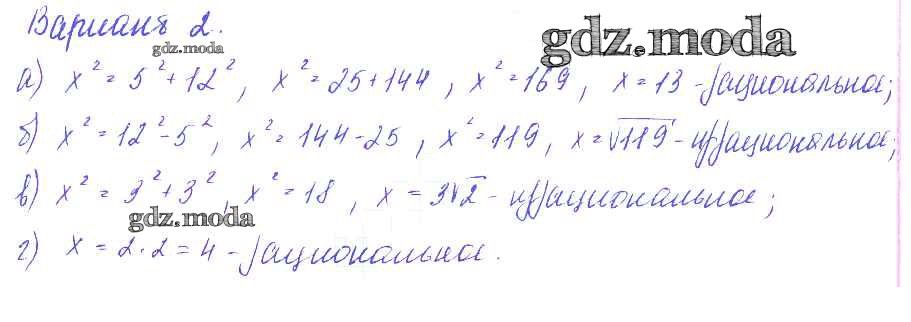 Вариант 2.
gdz.moda
gdz.moda
а) x² = 5² + 12², x² = 25 + 144, x² = 169, x = 13 - рациональное;
б) x² = 12² - 5², x² = 144 - 25, x² = 119, x = √119 - иррациональное;
в) x² = 3² + 3², x² = 18, x = 3√2 - иррациональное;
gdz.moda
г) x = 2 · 2 = 4 - рациональное.